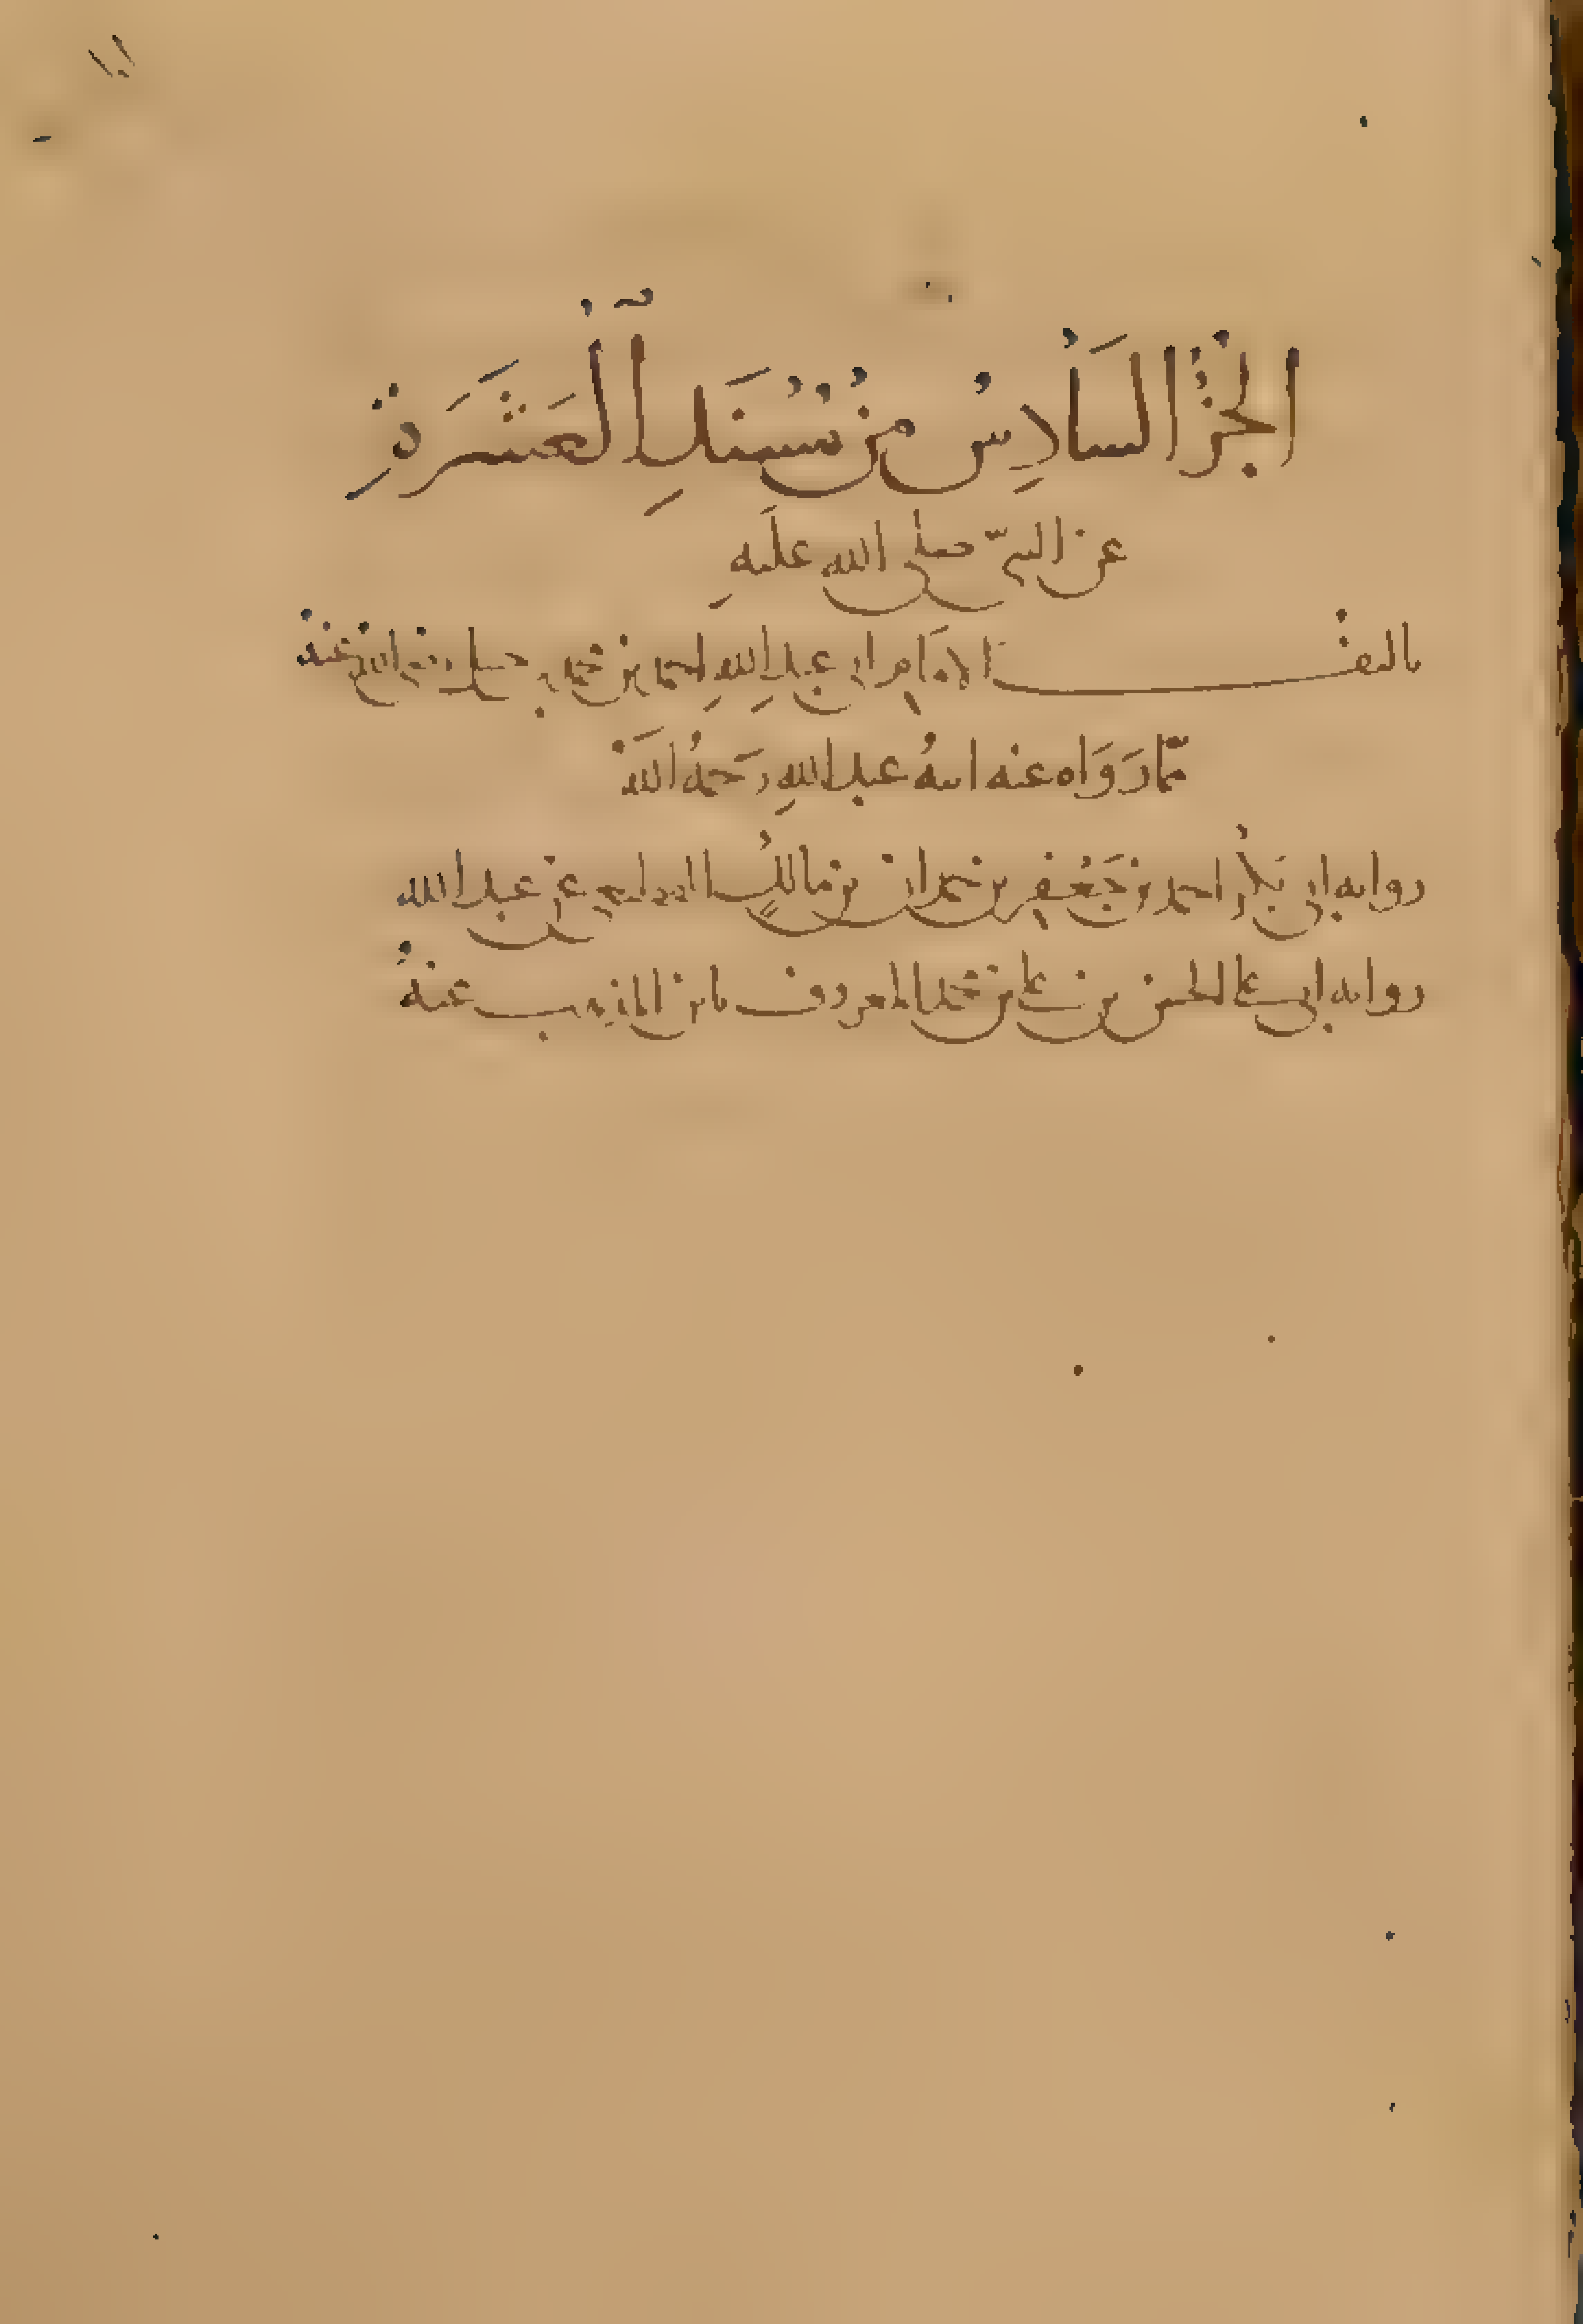 ١٠١
الجُزْءُ السَّادِسُ مِنْ مُسْنَدِ الْعَشَرَةِ
عن النبي صلى الله عليهِ
تاليف الإمَامِ ابي عبدِ اللهِ احمد بن محمد بن حنبل رضي الله عنهُ
ممّا رَوَاه عنه ابنهُ عبد اللهِ رَحمهُ اللهُ
روايه ابي بكْر احمد بن جَعْفرِ بن حمدان بن مالكٍ القطيعي عن عبد الله
روايه ابي علي الحسن بن علي بن محمد المعروف بابن المذهب عنهُ